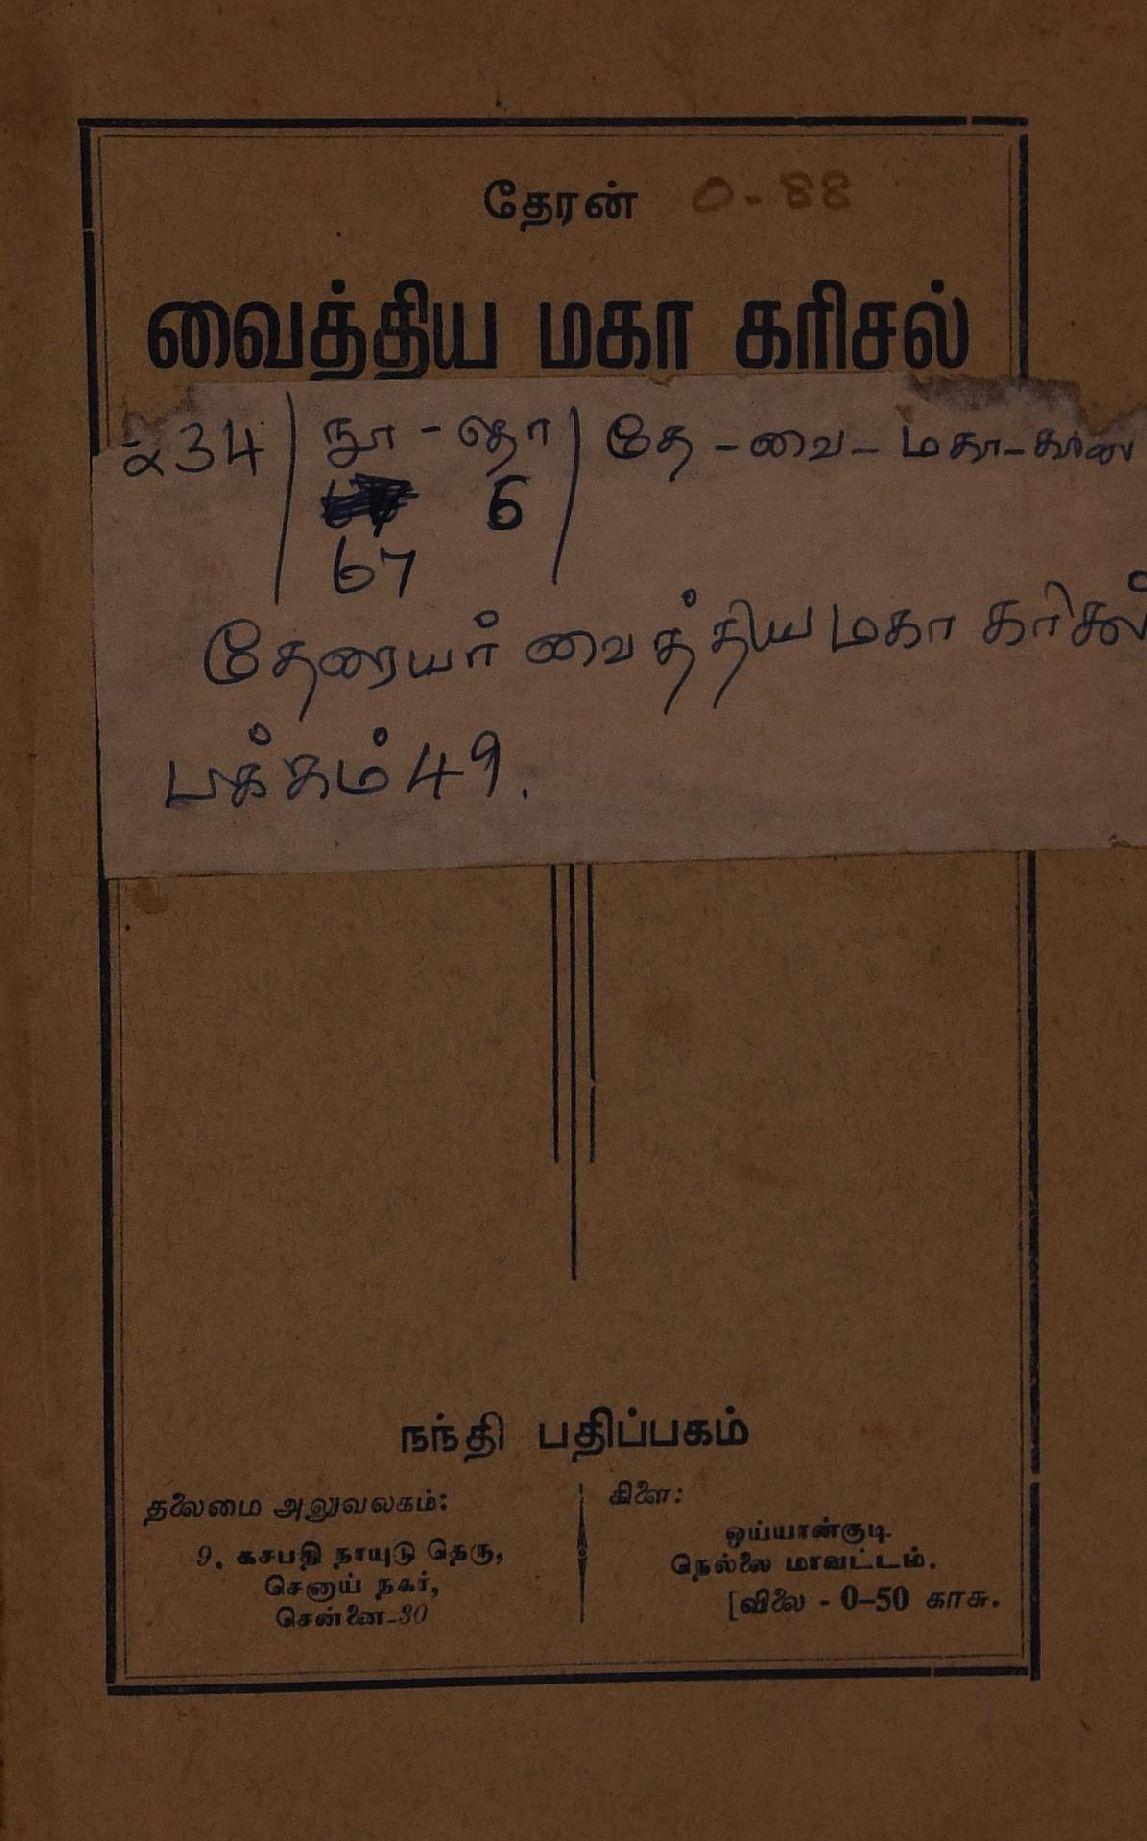 தேரன் 0-88
வைத்திய மகா கரிசல்
234 நூ - ஞா தே - வை - மகா -
6
67
தேரையர் வைத்திய மகா கரிசல்
பக்கம் 49.
நந்தி பதிப்பகம்
தலைமை அலுவலகம்:
9, கசபதி நாயுடு தெரு,
செனாய் நகர்,
சென்னை-30
கிளை:
ஒய்யான்குடி.
நெல்லை மாவட்டம்.
[விலை - 0-50 காசு.